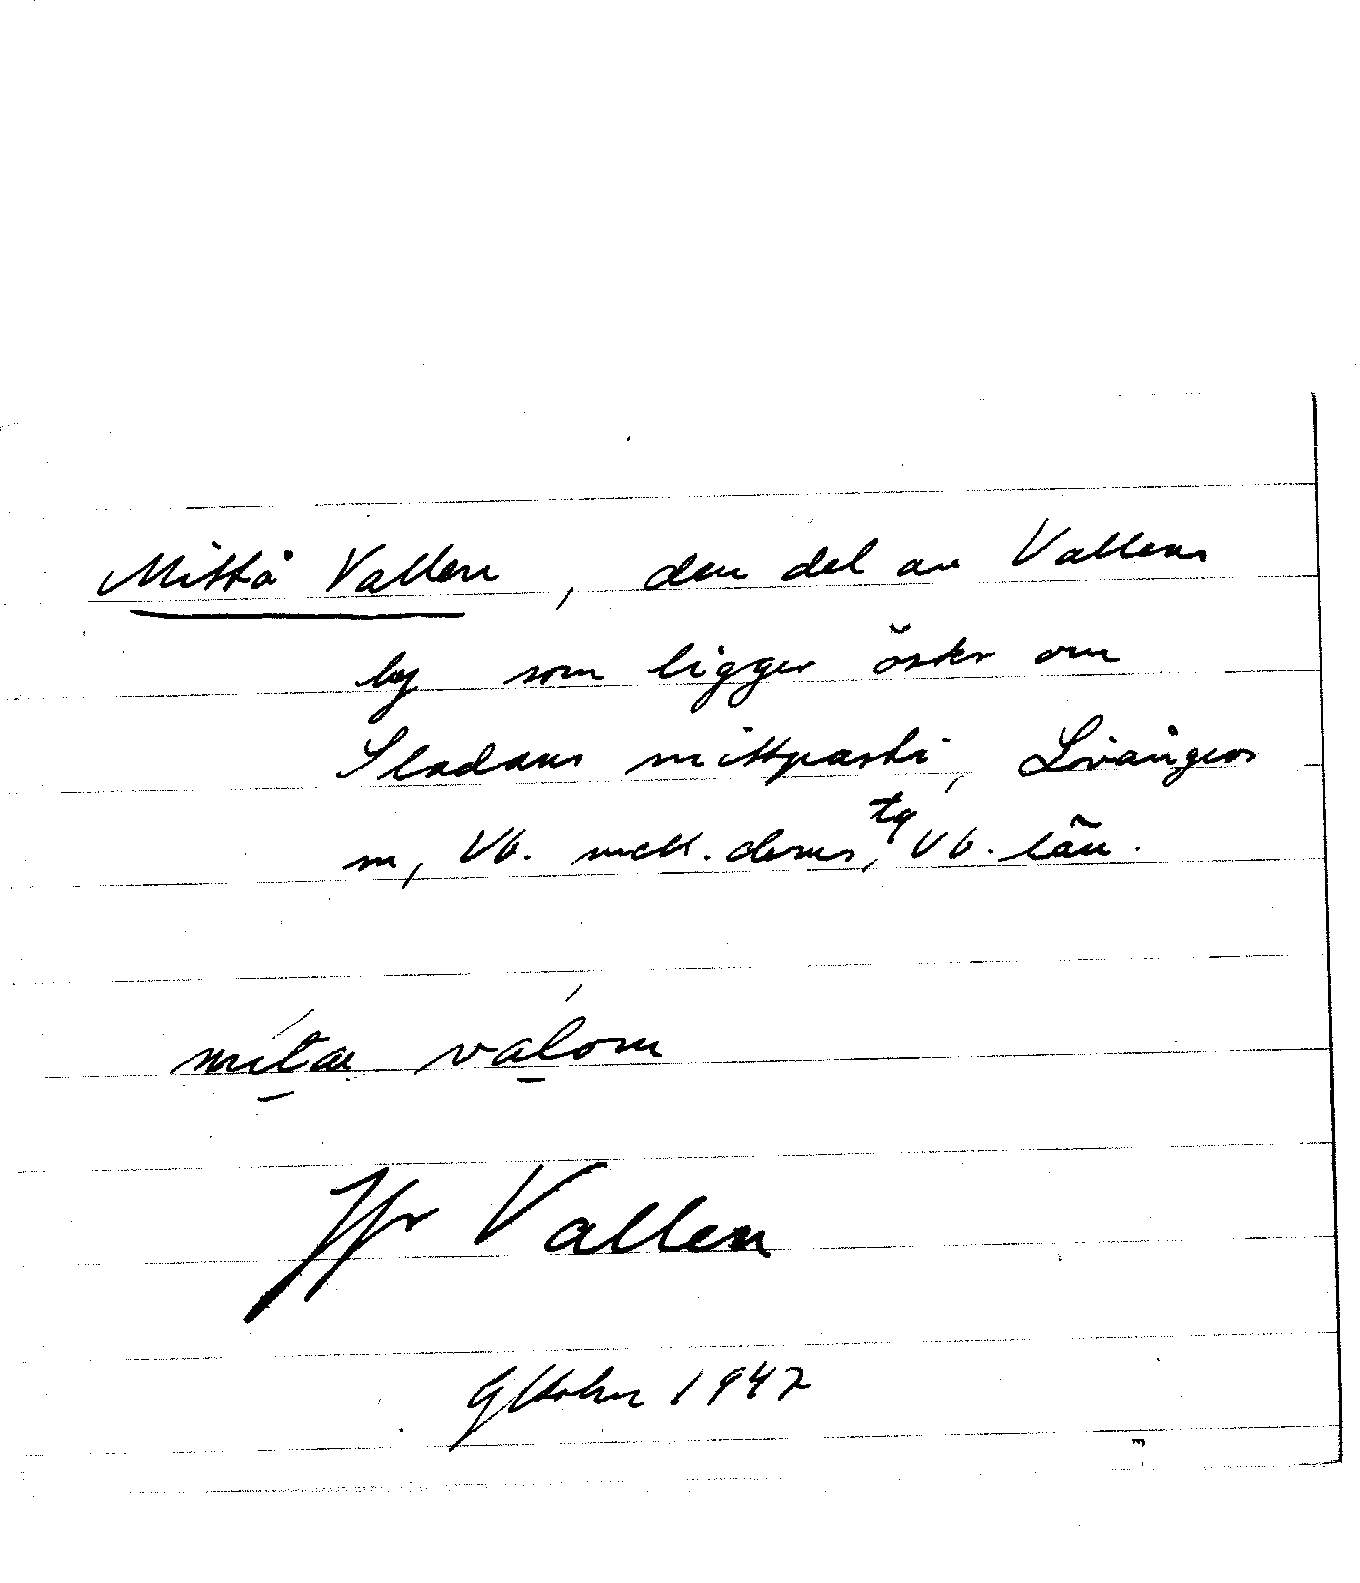 Mittå Vallen, den del av Vallens
by som ligger öster om
Sladans mittparti, Lövångers
sn, Vb. mell. doms. tg, Vb. län.
mita valom
Jfr Vallen
1947